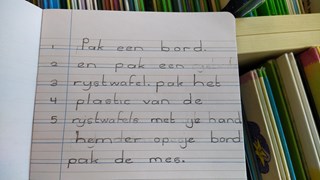 1 Pak een bord.
2 en pak een
3 rystwafel. pak het
4 plastic van de
5 rystwafels met je hand
op je bord
pak de mes.